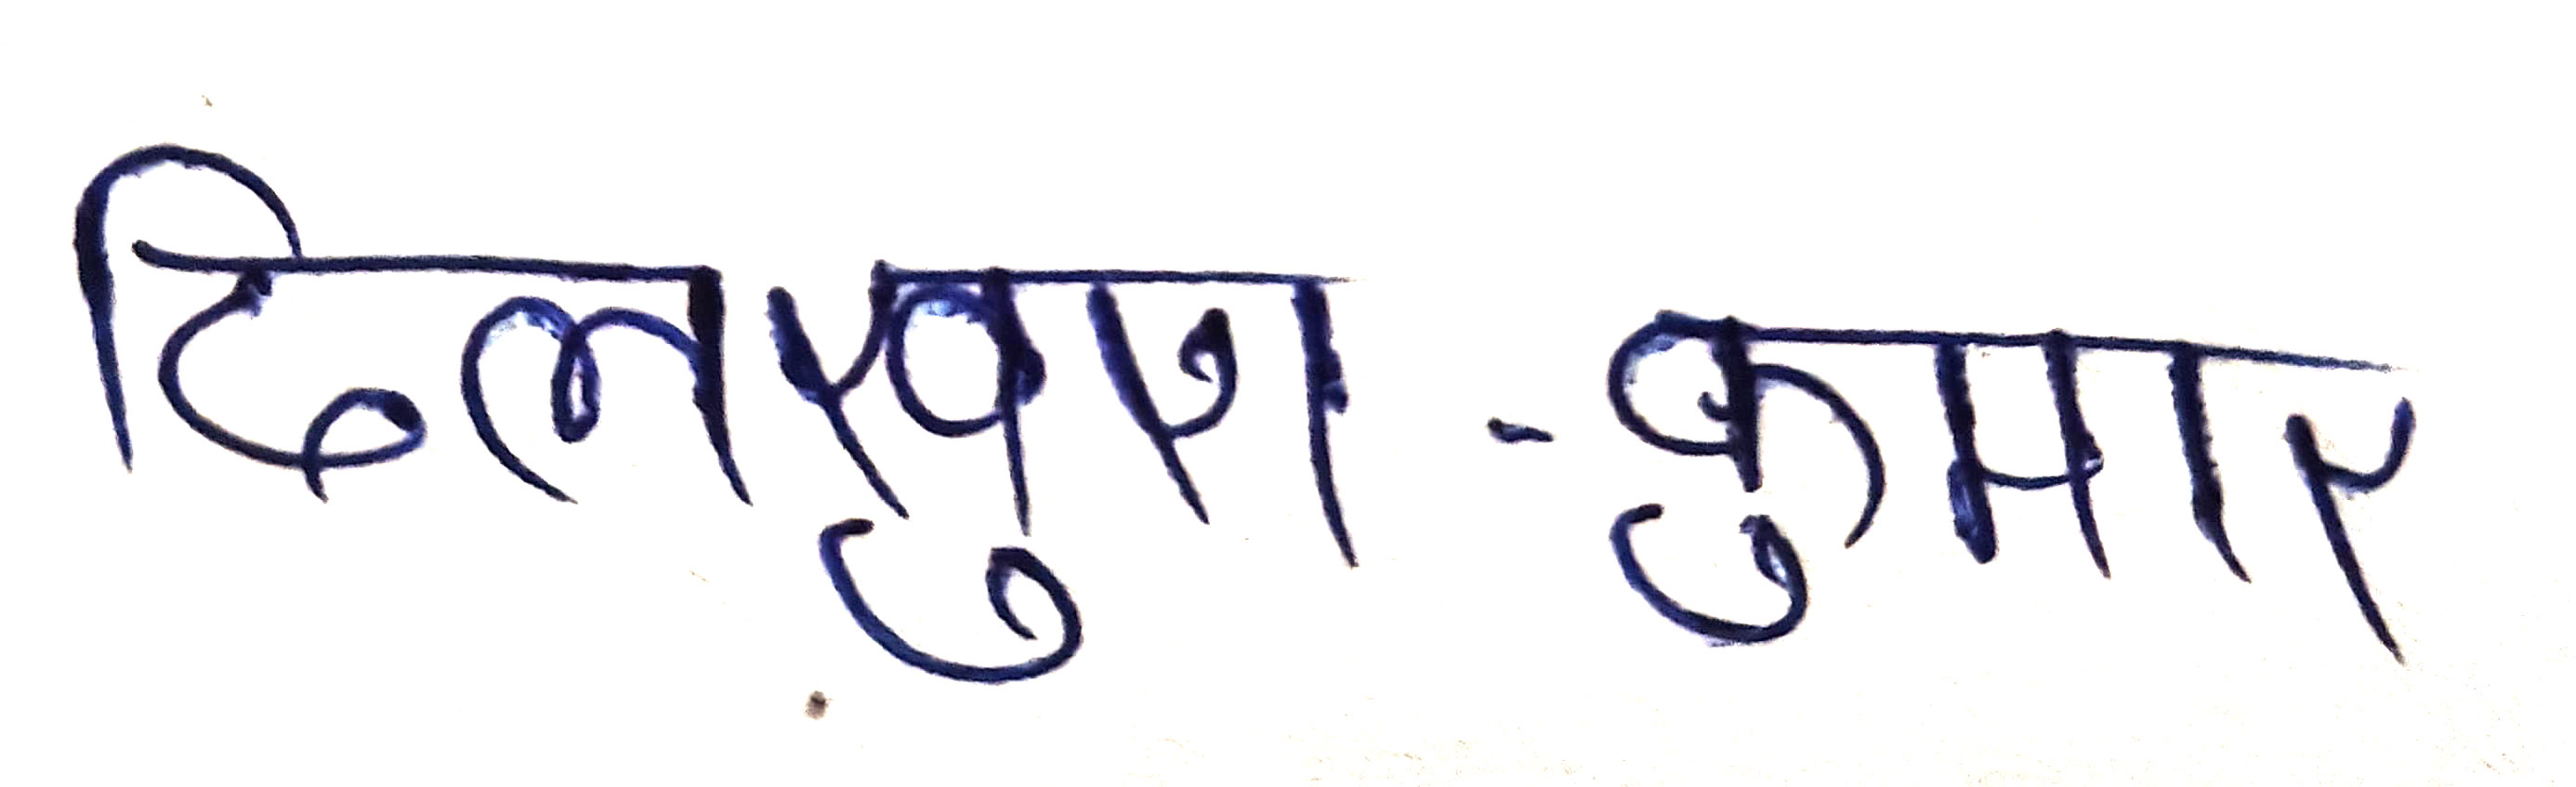 दिलखुश - कुमार